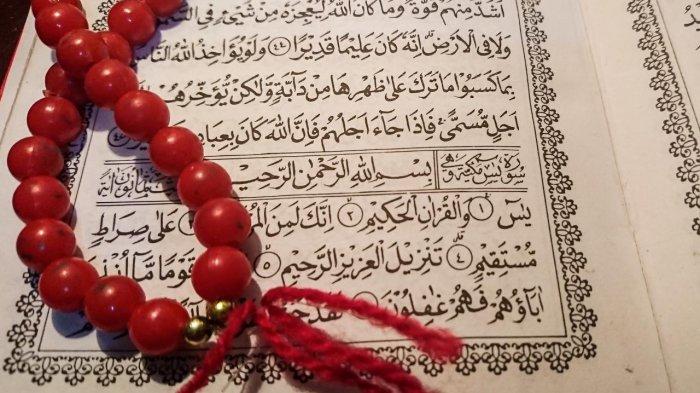 اَشَدَّ مِنْهُمْ قُوَّةً وَمَا كَانَ اللّٰهُ لِيُعْجِزَهٗ مِنْ شَيْءٍ فِي السَّمٰوٰتِ
وَلَا فِي الْاَرْضِ اِنَّهٗ كَانَ عَلِيْمًا قَدِيْرًا ۝٤٤ وَلَوْ يُؤَاخِذُ اللّٰهُ النَّاسَ
بِمَا كَسَبُوْا مَا تَرَكَ عَلٰى ظَهْرِهَا مِنْ دَآبَّةٍ وَّلٰكِنْ يُّؤَخِّرُهُمْ
اَجَلٍ مُّسَمًّى فَاِذَا جَآءَ اَجَلُهُمْ فَاِنَّ اللّٰهَ كَانَ بِعِبَادِهٖ
سُوْرَةُ يٰسٓ مَكِّيَّةٌ وَهِيَ بِسْمِ اللّٰهِ الرَّحْمٰنِ الرَّحِيْمِ
يٰسٓ ۝١ وَالْقُرْاٰنِ الْحَكِيْمِ ۝٢ اِنَّكَ لَمِنَ عَلٰى صِرَاطٍ
مُّسْتَقِيْمٍ ۝٤ تَنْزِيْلَ الْعَزِيْزِ الرَّحِيْمِ ۝٥ قَوْمًا مَّآ اُنْذِرَ
اٰبَآؤُهُمْ فَهُمْ غٰفِلُوْنَ ۝٦ لَقَدْ